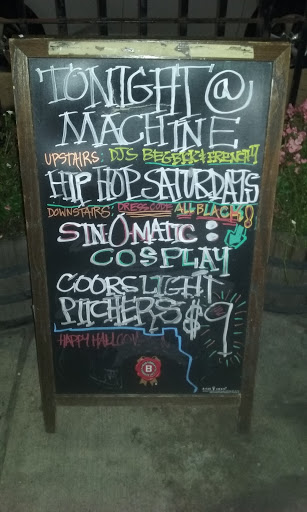 TONIGHT @
MACHINE
UPSTAIRS: DJS
HIP HOP SATURDAYS
DOWNSTAIRS: DRESS CODE ALL BLACK!
SIN-O-MATIC:
COSPLAY
COORS LIGHT
PITCHERS $9
HAPPY HALLOW
B